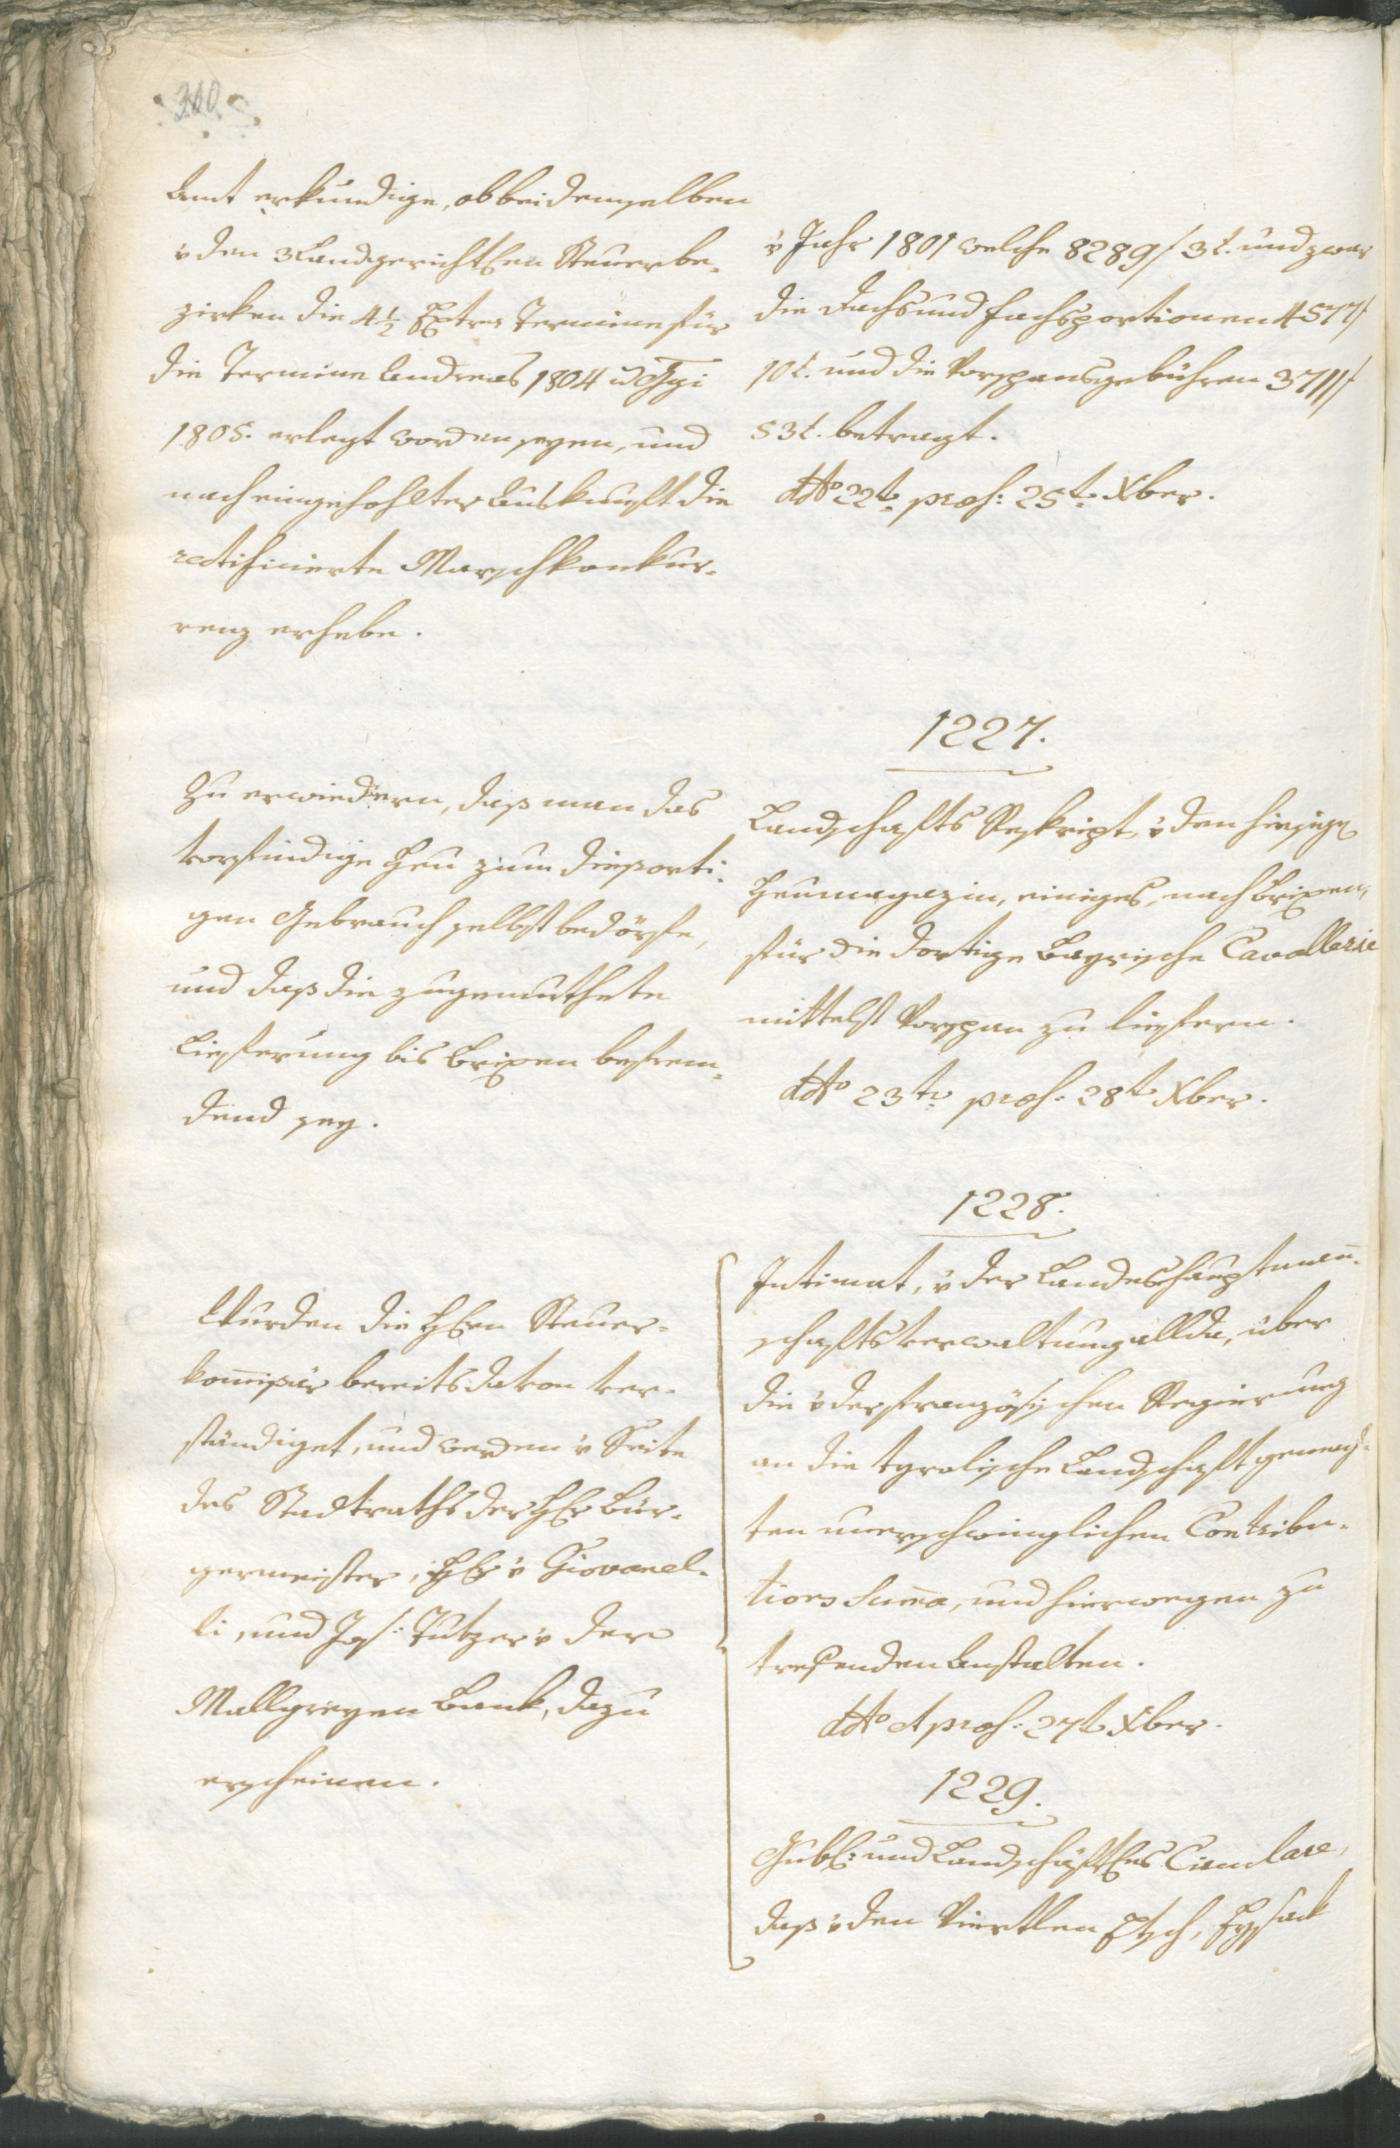 310.
Amt erkundige, ob bei demselben
v den 3 Landgerichtlen Steuerbe-
zirken die 4½ Extra Termine für
die Termine Andreas 1804 u
1805. erlegt worden seyen, und
nach eingehohlter Auskunft die
rectificierte Marschkonkur-
renz erhebe.
Zu erwiedern, daß man das
vorfindige Heu zum diesorti-
gen Gebrauch selbst bedörfe,
und daß die zugemuthete
Lieferung bis Brixen befrem-
dend sey.
Wurden die HEen Steuer-
kom̄issär bereits davon ver-
ständiget, und werden v Seite
des Stadtraths der HEr Bür-
germeister, HEr v Giovanel-
li, und Jos: Tutzer v der
Mallgreyen Bank, dazu
erscheinen.
v Jahr 1801 welche 8289 f 3 t. und zwar
die Dach und Fachsportionen 4577 f
10 t. und die Vorspansgebühren 3711 f
53 t. betragt.
ddto 22t. præs: 25t. Xber.
1227.
Landschafts Reskript, v den hiesigen
Heumagazin, einiges, nach Brixen,
für die dortige Bayrische Cavallerie
mittelst Vorspan zu liefern.
ddto 23t. præs: 28t. Xber.
1228.
Intimat, v der Landeshauptman̄-
schaftsverwaltung allda, über
die v der französischen Regierung
an die tyrolische Landschaft gemach-
ten unerschwinglichen Contribu-
tions Sum̄a, und hierwegen zu
trefenden Anstalten.
ddto et præs: 27t. Xber.
1229.
Gubl: und Landschäftles Circulare,
daß v den Viertlen Etsch, Eysack